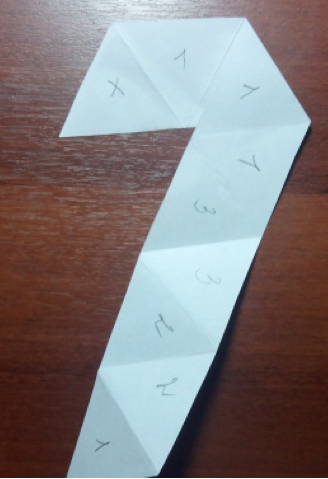 1
1
1
1
3
3
2
2
1